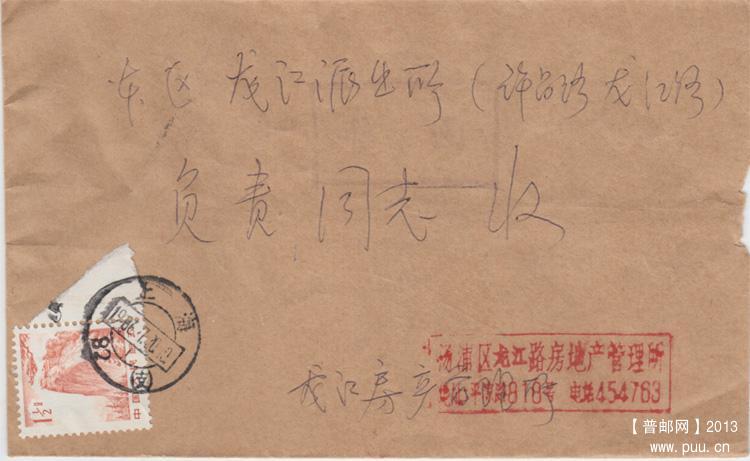 东区 龙江派出所（许昌路龙江路）
负责同志 收
上海
1986.7.
82
1½
中国
杨浦区龙江路房地产管理所
818号 电话454763
龙江房产
【普邮网】2013
www.puu.cn